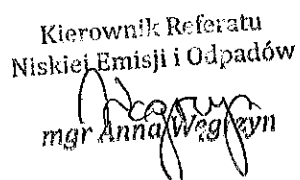 Kierownik Referatu
Niskiej Emisji i Odpadów
mgr Anna Węgrzyn